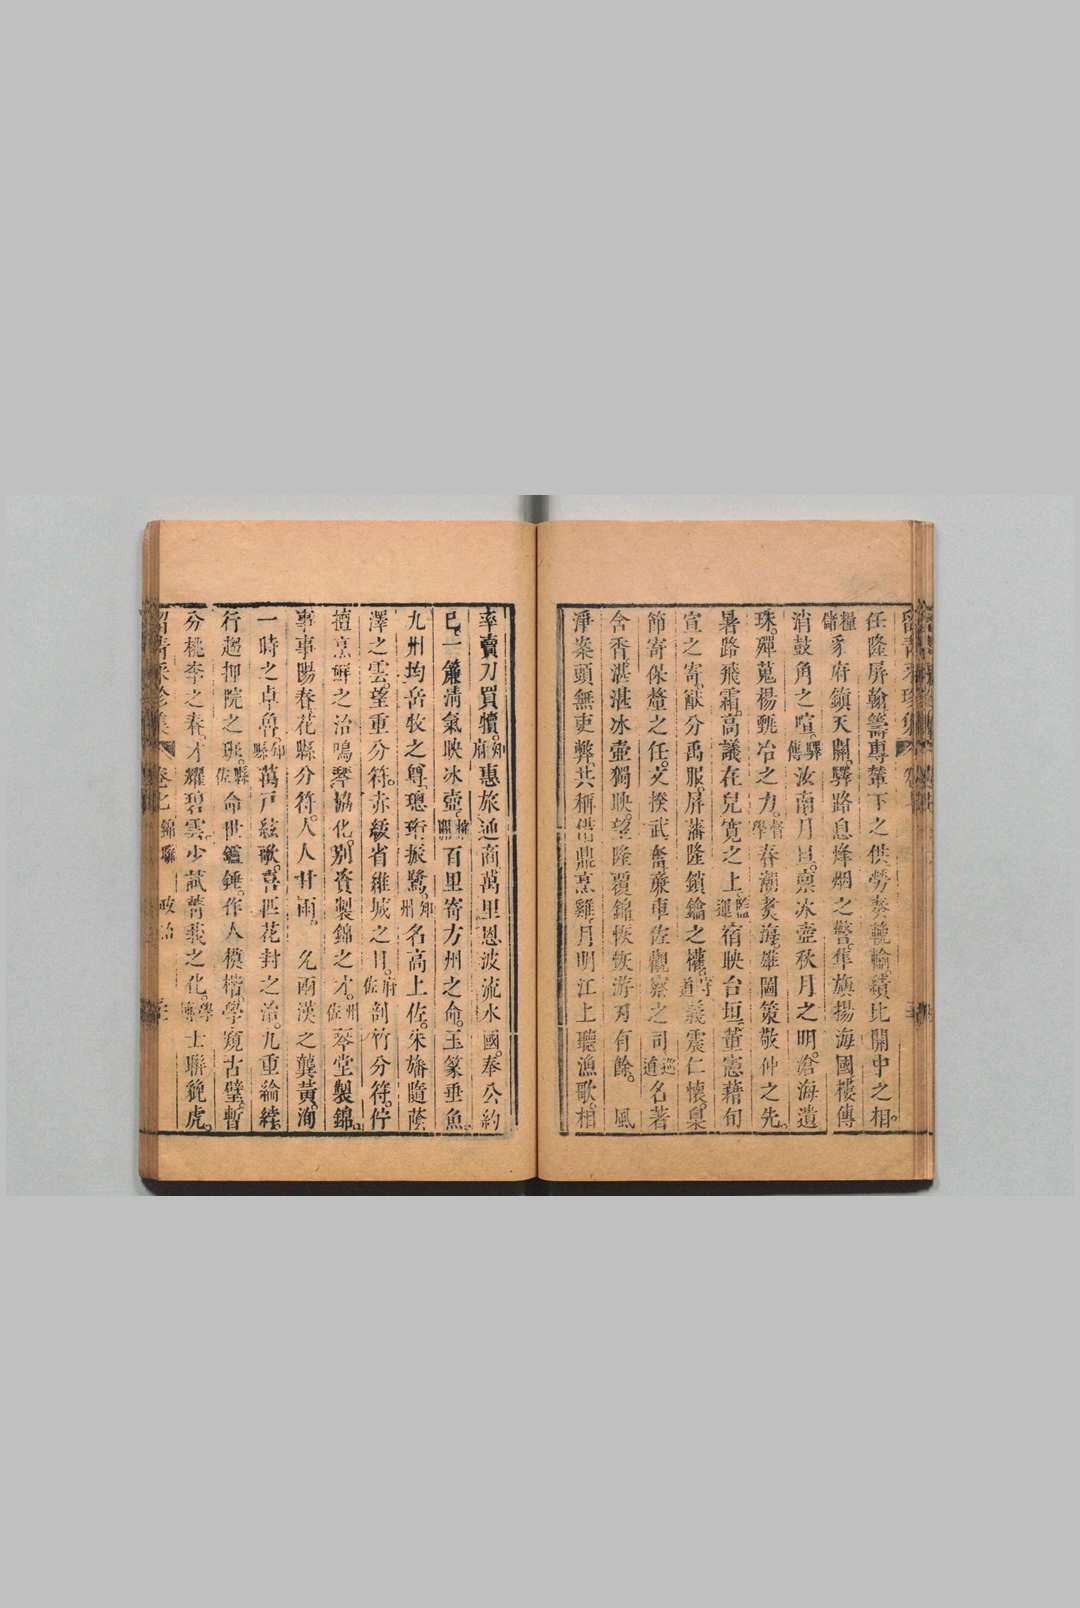 任隆屏翰籌專輦下之供勞奏輓輸績比關中之相
糧儲豸府鎮天關驛路息烽烟之警隼旗揚海國樓傳
消鼓角之喧驛傳汝南月旦稟冰壺秋月之明滄海遺
珠殫蒐楊甄冶之力督學春潮煑海雄圖策敬仲之先
暑路飛霜高議在兒寬之上監運宿映台垣董憲藉旬
宣之寄猷分禹服屏藩隆鎖鑰之權守道義震仁懷臬
節寄保釐之任文揆武奮兼車佐觀察之司巡道名著
含香湛湛冰壺獨映望隆覆錦恢恢游刃有餘 風
淨案頭無吏弊共稱借鼎烹雞月明江上聽漁歌相
率賣刀買犢知府惠旅通商萬里恩波流水國奉公約
巳一簾淸氣映冰壺榷關百里寄方州之命玉篆垂魚
九州均岳牧之尊璁珩振鷺知州名高上佐朱旛隨蔭
澤之雲望重分符赤紱省維城之日府佐剖竹分符佇
擅烹鮮之治鳴琴協化別資製錦之才州佐琴堂製錦
事事陽春花縣分符人人甘雨 允兩漢之龔黃洵
一時之卓魯知縣萬戸絃歌喜匹花封之治九重綸綍
行超抑院之班縣佐命世鑑錘作人模楷學窺古壁暫
分桃李之春才耀碧雲少試菁莪之化學博士聯貔虎
留靑采珍集 卷之 錦聯 政治